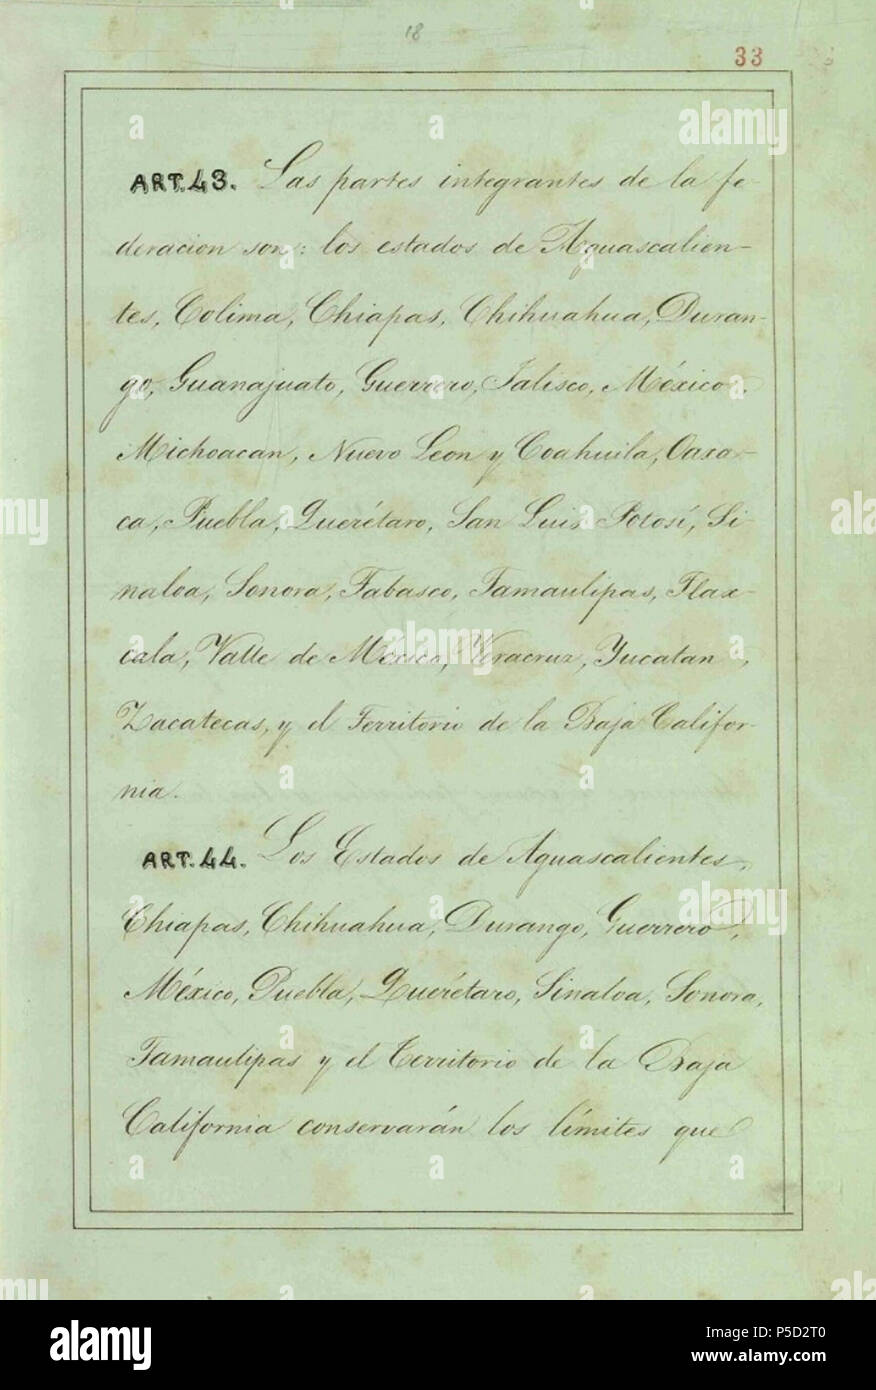 18
33
ART.43. Las partes integrantes de la fe-
deracion son: los estados de Aguascalien-
tes, Colima, Chiapas, Chihuahua, Duran-
go, Guanajuato, Guerrero, Jalisco, México,
Michoacan, Nuevo Leon y Coahuila, Oaxa-
ca, Puebla, Querétaro, San Luis Potosí, Si-
naloa, Sonora, Tabasco, Tamaulipas, Tlax-
cala, Valle de México, Veracruz, Yucatan,
Zacatecas, y el Territorio de la Baja Califor-
nia.
ART.44. Los Estados de Aguascalientes,
Chiapas, Chihuahua, Durango, Guerrero,
México, Puebla, Querétaro, Sinaloa, Sonora,
Tamaulipas y el Territorio de la Baja
California conservarán los límites que
alamy
Image ID: P5D2T0
www.alamy.com